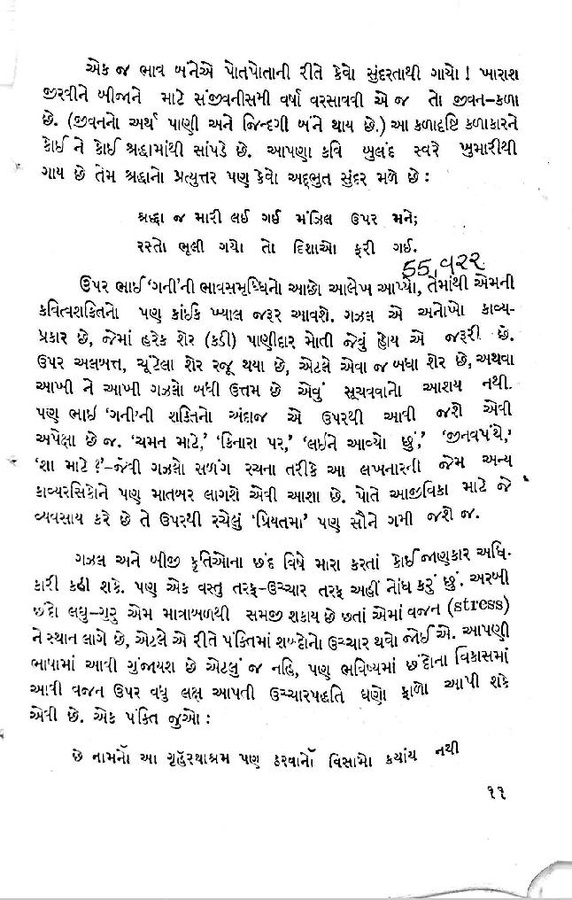 એક જ ભાવ બંનેએ પોતપોતાની રીતે કેવો સુંદરતાથી ગાયો ! ખારાશ
જીરવીને બીજાને માટે સંજીવનીસમી વર્ષા વરસાવવી એ જ તો જીવન-કળા
છે. (જીવનનો અર્થ પાણી અને જિન્દગી બંને થાય છે.) આ કળાદૃષ્ટિ કળાકારને
કોઈ ને કોઈ શ્રદ્ધામાંથી સાંપડે છે. આપણા કવિ બુલંદ સ્વરે ખુમારીથી
ગાય છે તેમ શ્રદ્ધાનો પ્રત્યુત્તર પણ કેવો અદ્દભુત સુંદર મળે છે :
શ્રદ્ધા જ મારી લઈ ગઈ મંઝિલ ઉપર મને;
રસ્તો ભૂલી ગયો તો દિશાઓ ફરી ગઈ.
55,922
ઉપર ભાઈ ‘ગની’ની ભાવસમૃધ્ધિનો આછો આલેખ આપ્યો, તેમાંથી એમની
કવિત્વશક્તિનો પણ કાંઈક ખ્યાલ જરૂર આવશે. ગઝલ એ અનોખો કાવ્ય-
પ્રકાર છે, જેમાં હરેક શેર (કડી) પાણીદાર મોતી જેવું હોય એ જરૂરી છે.
ઉપર અલબત્ત, ચૂંટેલા શેર રજૂ થયા છે, એટલે એવા જ બધા શેર છે, અથવા
આખી ને આખી ગઝલો બધી ઉત્તમ છે એવું સૂચવવાનો આશય નથી.
પણ ભાઈ ‘ગની’ની શક્તિનો અંદાજ એ ઉપરથી આવી જશે એવી
અપેક્ષા છે જ. ‘ચમન માટે,’ ‘કિનારા પર,’ ‘લઈને આવ્યો છું,’ ‘જીનવપંથે,’
‘શા માટે ?’-જેવી ગઝલો સળંગ રચના તરીકે આ લખનારની જેમ અન્ય
કાવ્યરસિકોને પણ માતબર લાગશે એવી આશા છે. પોતે આજીવિકા માટે જે
વ્યવસાય કરે છે તે ઉપરથી રચેલું ‘પ્રિયતમા’ પણ સૌને ગમી જશે જ.
ગઝલ અને બીજી કૃતિઓના છંદ વિષે મારા કરતાં કોઈ જાણકાર અધિ-
કારી કહી શકે. પણ એક વસ્તુ તરફ-ઉચ્ચાર તરફ અહીં નોંધ કરું છું. અરબી
છંદો લઘુ-ગુરુ એમ માત્રાબળથી સમજી શકાય છે છતાં એમાં વજન (stress)
ને સ્થાન લાગે છે, એટલે એ રીતે પંક્તિમાં શબ્દોનો ઉચ્ચાર થવો જોઈએ. આપણી
ભાષામાં આવી ગુંજાયશ છે એટલું જ નહિ, પણ ભવિષ્યમાં છંદોના વિકાસમાં
આવી વજન ઉપર વધુ લક્ષ આપતી ઉચ્ચારપદ્ધતિ ઘણો ફાળો આપી શકે
એવી છે. એક પંક્તિ જુઓ :
છે નામનૉ આ ગૃહસ્થાશ્રમ પણ ઠરવાનૉ વિસામો કયાંય નથી
૧૧